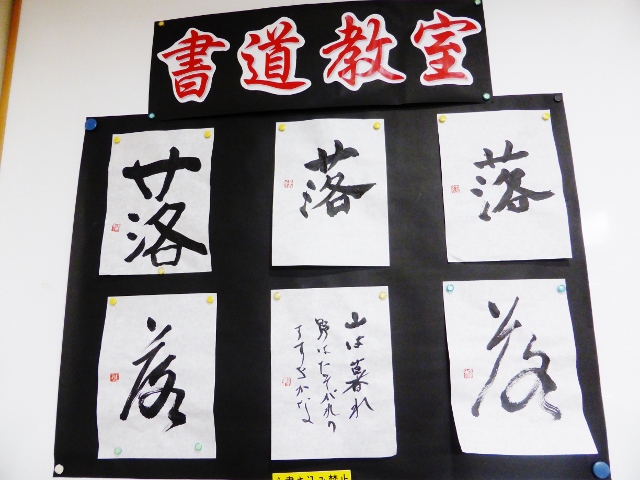 書道教室
落
落
落
落
山は暮れ
野はたそがれの
すすきかな
落
書き込み禁止